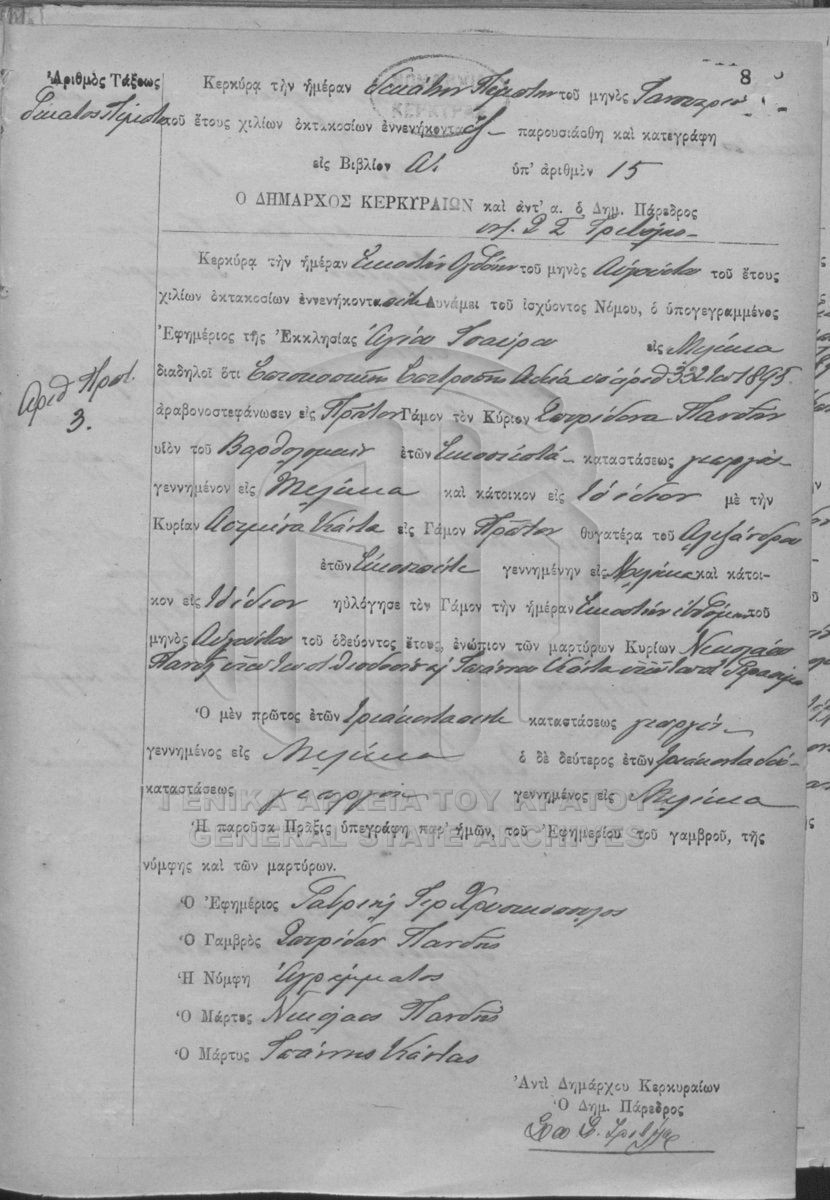 8
Ἀριθμὸς Τάξεως
Δέκατος Πέμπτος
Κερκύρᾳ τὴν ἡμέραν δεκάτην Πέμπτην τοῦ μηνὸς Ἰανουαρίου
τοῦ ἔτους χιλίων ὀκτακοσίων ἐννενήκοντα ἕξ παρουσιάσθη καὶ κατεγράφη
εἰς Βιβλίον Α΄. ὑπ' ἀριθμὸν 15
Ο ΔΗΜΑΡΧΟΣ ΚΕΡΚΥΡΑΙΩΝ καὶ ἀντ' α. ὁ Δημ. Πάρεδρος
Κερκύρᾳ τὴν ἡμέραν Εικοστὴν Ογδόην τοῦ μηνὸς Αὐγούστου τοῦ ἔτους
χιλίων ὀκτακοσίων ἐννενήκοντα πέντε Δυνάμει τοῦ ἰσχύοντος Νόμου, ὁ ὑπογεγραμμένος
Ἐφημέριος τῆς Ἐκκλησίας Ἁγία εἰς
διαδηλοῖ ὅτι Επισκοπικῆς Επιτροπῆς Αδεία ὑπ' αριθ 332 του 1895.
Αριθ Πρωτ.
3.
ἀραβονοστεφάνωσεν εἰς Πρῶτον Γάμον τὸν Κύριον Σπυρίδωνα Πανδὴν
υἱὸν τοῦ Βαρθολομαίου ἐτῶν Εικοσιεπτά καταστάσεως γεωργὸν
γεννημένον εἰς καὶ κάτοικον εἰς Τὸ ἴδιον μὲ τὴν
Κυρίαν Ασημίνα Κάντα εἰς Γάμον Πρῶτον θυγατέρα τοῦ Αλεξάνδρου
ἐτῶν Εικοσιπέντε γεννημένην εἰς καὶ κάτοι-
κον εἰς Τὸ ἴδιον ηὐλόγησε τὸν Γάμον τὴν ἡμέραν Εικοστὴν ἑβδόμην τοῦ
μηνὸς Αὐγούστου τοῦ ὁδεύοντος ἔτους, ἐνώπιον τῶν μαρτύρων Κυρίων Νικολάου
Πανδῆ του ποτ Θεοδοσίου κ Ιωάννου Κάντα του ποτ Γερασίμου
Ὁ μὲν πρῶτος ἐτῶν τριάκοντα πέντε καταστάσεως γεωργὸς
γεννημένος εἰς ὁ δὲ δεύτερος ἐτῶν τριάκοντα δύο
καταστάσεως γεωργὸς γεννημένος εἰς
ΓΕΝΙΚΑ ΑΡΧΕΙΑ ΤΟΥ ΚΡΑΤΟΥΣ
GENERAL STATE ARCHIVES
Ἡ παροῦσα Πρᾶξις ὑπεγράφη παρ' ἡμῶν, τοῦ Ἐφημερίου τοῦ γαμβροῦ, τῆς
νύμφης καὶ τῶν μαρτύρων.
Ὁ Ἐφημέριος Γαβριὴλ Ιερ
Ὁ Γαμβρὸς Σπυρίδων Πανδῆς
Ἡ Νύμφη Αγράμματος
Ὁ Μάρτυς Νικόλαος Πανδῆς
Ὁ Μάρτυς Ἰωάννης Κάντας
Ἀντὶ Δημάρχου Κερκυραίων
Ὁ Δημ. Πάρεδρος